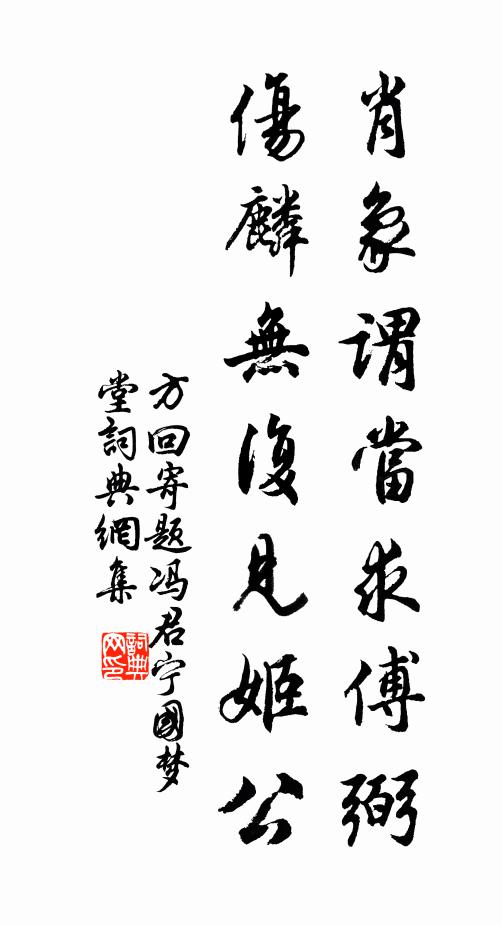 肖象謂當求傅弼
傷麟無復見姬公
方回寄題冯君宁國梦
堂詞典網集
詞典
网印